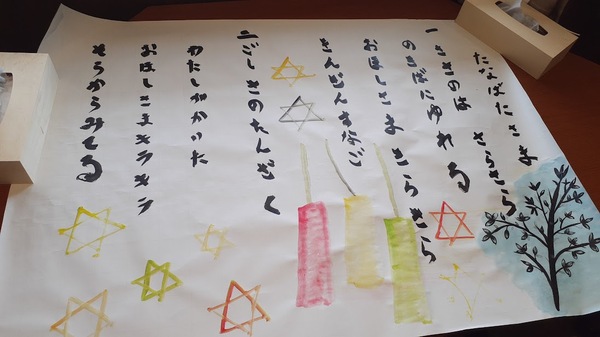 たなばたさま
一 ささのは さらさら
のきばにゆれる
おほしさま きらきら
きんぎんすなご
二 ごしきのたんざく
わたしがかいた
おほしさまキラキラ
そらからみてる